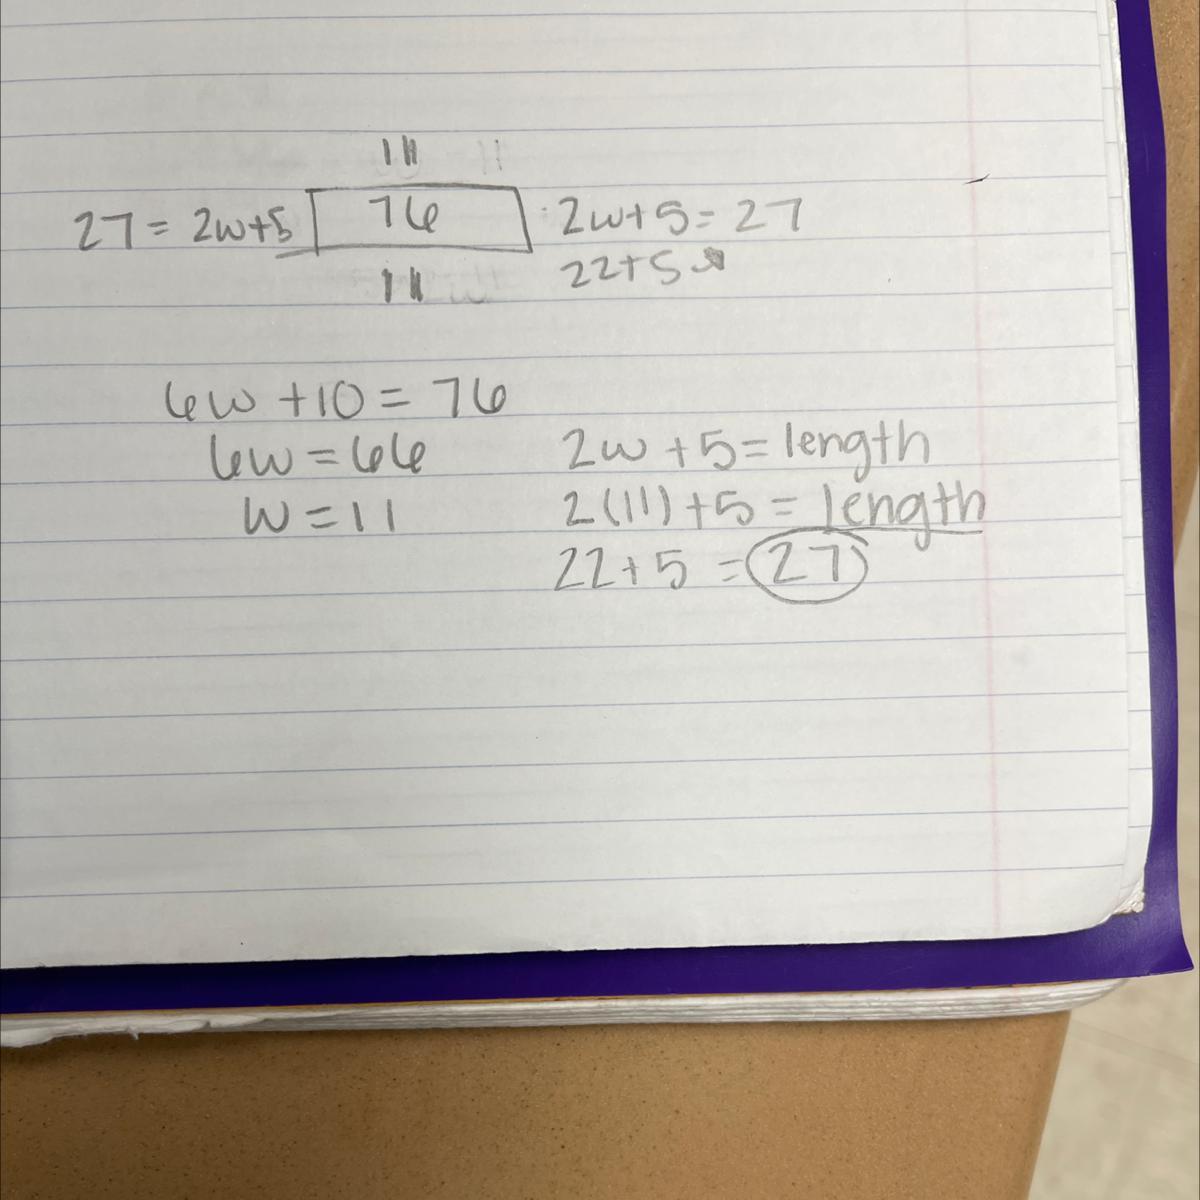 11
27 = 2w+5 76 2w+5 = 27
22+5
11
6w +10 = 76
6w = 66
w = 11
2w + 5 = length
2(11) + 5 = length
22 + 5 = 27